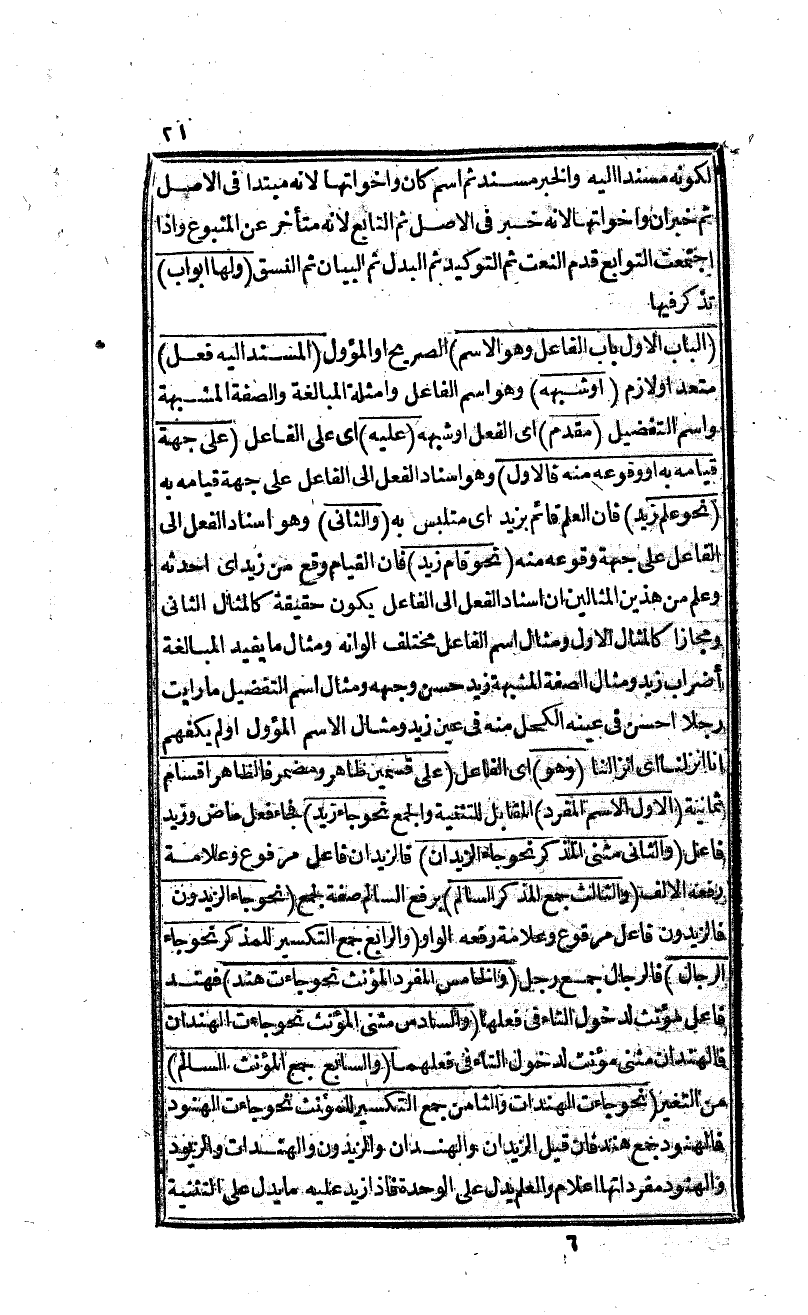 ٢١
لكونه مسندا اليه والخبر مسند ثم اسم كان واخواتها لانه مبتدا فى الاصل
ثم خبران واخواتها لانه خبر فى الاصل ثم التابع لانه متأخر عن المتبوع واذا
اجتمعت التوابع قدم النعت ثم التوكيد ثم البدل ثم البيان ثم النسق (ولها ابواب)
تذكر فيها
(الباب الاول باب الفاعل وهو الاسم) الصريح او المؤول (المسند اليه فعل)
متعد او لازم (اوشبهه) وهو اسم الفاعل وامثلة المبالغة والصفة المشبهة
واسم التفضيل (مقدم) اى الفعل اوشبهه (عليه) اى على الفاعل (على جهة
قيامه به او وقوعه منه فالاول) وهو اسناد الفعل الى الفاعل على جهة قيامه به
(نحو علم زيد) فان العلم قائم بزيد اى متلبس به (والثانى) وهو اسناد الفعل الى
الفاعل على جهة وقوعه منه (نحو قام زيد) فان القيام وقع من زيد اى احدثه
وعلم من هذين المثالين ان اسناد الفعل الى الفاعل يكون حقيقة كالمثال الثانى
ومجازا كالمثال الاول ومثال اسم الفاعل مختلف الوانه ومثال ما يفيد المبالغة
أضراب زيد ومثال الصفة المشبهة زيد حسن وجهه ومثال اسم التفضيل ما رايت
رجلا احسن فى عينه الكحل منه فى عين زيد ومثال الاسم المؤول اولم يكفهم
انا انزلنا اى انزالنا (وهو) اى الفاعل (على قسمين ظاهر ومضمر فالظاهر اقسام
ثمانية (الاول الاسم المفرد) المقابل للتثنية والجمع نحو جاء زيد) فجاء فعل ماض وزيد
فاعل (والثانى مثنى المذكر نحو جاء الزيدان) فالزيدان فاعل مرفوع وعلامة
رفعه الالف (والثالث جمع المذكر السالم) برفع السالم صفة لجمع (نحو جاء الزيدون
فالزيدون فاعل مرفوع وعلامة رفعه الواو (والرابع جمع التكسير للمذكر نحو جاء
الرجال) فالرجال جمع رجل (والخامس المفرد المؤنث نحو جاءت هند) فهند
فاعل مؤنث لدخول التاء فى فعلها (والسادس مثنى المؤنث نحو جاءت الهندان
فالهندان مثنى مؤنث لدخول التاء فى فعلهما (والسابع جمع المؤنث السالم)
من التغير (نحو جاءت الهندات والثامن جمع التكسير للمؤنث نحو جاءت الهنود
فالهنود جمع هند فان قيل الزيدان والهندان والزيدون والهندات والزيود
والهنود مفرداتها اعلام والعلم يدل على الوحدة فاذا زيد عليه ما يدل على التثنية
٦